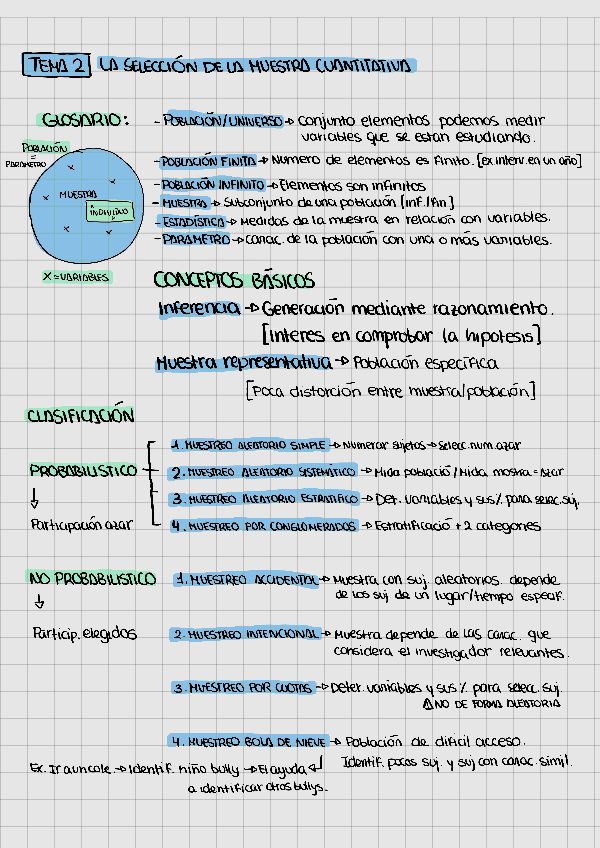 TEMA 2 LA SELECCIÓN DE LA MUESTRA CUANTITATIVA
GLOSARIO:
- POBLACIÓN/UNIVERSO → Conjunto elementos podemos medir
variables que se estan estudiando.
POBLACIÓN
=
PARAMETRO
MUESTRA
INDIVIDUO
X = VARIABLES
- POBLACIÓN FINITA → Numero de elementos es finito. [ex interv. en un año]
- POBLACIÓN INFINITO → Elementos son infinitos
- MUESTRA → Subconjunto de una población [inf./fin]
- ESTADÍSTICA → Medidas de la muestra en relación con variables.
- PARAMETRO → carac. de la población con una o más variables.
CONCEPTOS BÁSICOS
Inferencia → Generación mediante razonamiento.
[Interes en comprobar la hipotesis]
Muestra representativa → Población específica
[Poca distorción entre muestra/población]
CLASIFICACIÓN
PROBABILISTICO
↓
Participación azar
1. MUESTREO ALEATORIO SIMPLE → Numerar sujetos → selecc. num. azar
2. MUESTREO ALEATORIO SISTEMÁTICO → Mida població/Mida mostra = azar
3. MUESTREO ALEATORIO ESTRATIFICO → Det. variables y sus % para selec. suj.
4. MUESTREO POR CONGLOMERADOS → Estratificació + 2 categories
NO PROBABILISTICO
↓
Particip. elegidos
1. MUESTREO ACCIDENTAL → Muestra con suj. aleatorios. depende
de los suj de un lugar/tiempo especif.
2. MUESTREO INTENCIONAL → Muestra depende de las carac. que
considera el investigador relevantes.
3. MUESTREO POR CUOTAS → Deter. variables y sus % para selec. suj.
⚠ NO DE FORMA ALEATORIA
4. MUESTREO BOLA DE NIEVE → Población de dificil acceso.
Identif. pocos suj. y suj con carac. simil.
Ex. Ir a un cole → Identif. niño bully → El ayuda
a identificar otros bullys.